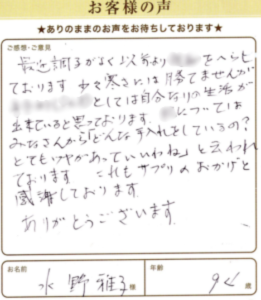 お客様の声
★ありのままのお声をお待ちしております★
ご感想・ご意見
最近調子がよく以前より をへらし
ております 少々寒さには勝てませんが
としては自分なりの生活が
出来ていると思っております。 については
みなさんから「どんな手入れをしているの?
とてもツヤがあっていいわね」と云われ
ております これもサプリのおかげと
感謝しております
ありがとうございます
お名前 水野雅子 様 年齢 歳